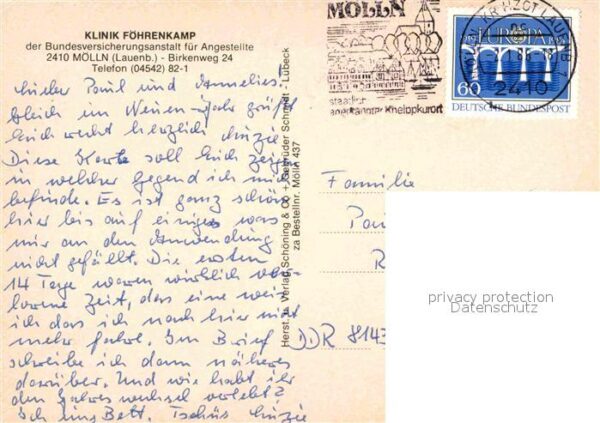 KLINIK FÖHRENKAMP
der Bundesversicherungsanstalt für Angestellte
2410 MÖLLN (Lauenb.) - Birkenweg 24
Telefon (04542) 82-1
Lieber Paul und Annelies.
Gleich im Neuen Jahr grüßt
Euch recht herzlich
Diese Karte soll Euch zeigen
in welcher Gegend ich mich
befinde. Es ist ganz schön
hier bis auf einiges was
mir an den Anwendung
nicht gefällt. Die ersten
14 Tage waren wirklich ver-
lorene Zeit, das eine weiß
ich das ich nach hier nicht
mehr fahre. Im Brief
schreibe ich dann näheres
darüber. Und wie habt ihr
den Jahreswechsel verlebt?
Ich ins Bett. Tschüs
Herst. u. Verlag Schöning & Co + Gebrüder Schmidt - Lübeck
za Bestellnr. Mölln 437
MÖLLN
staatlich
anerkannter Kneippkurort
KR HZGT LAUENB
2410
EUROPA
60
DEUTSCHE BUNDESPOST
Familie
Pau
R
DDR 8143
privacy protection
Datenschutz